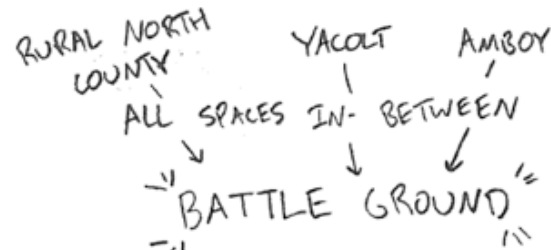 RURAL NORTH COUNTY
YACOLT
AMBOY
ALL SPACES IN- BETWEEN
BATTLE GROUND